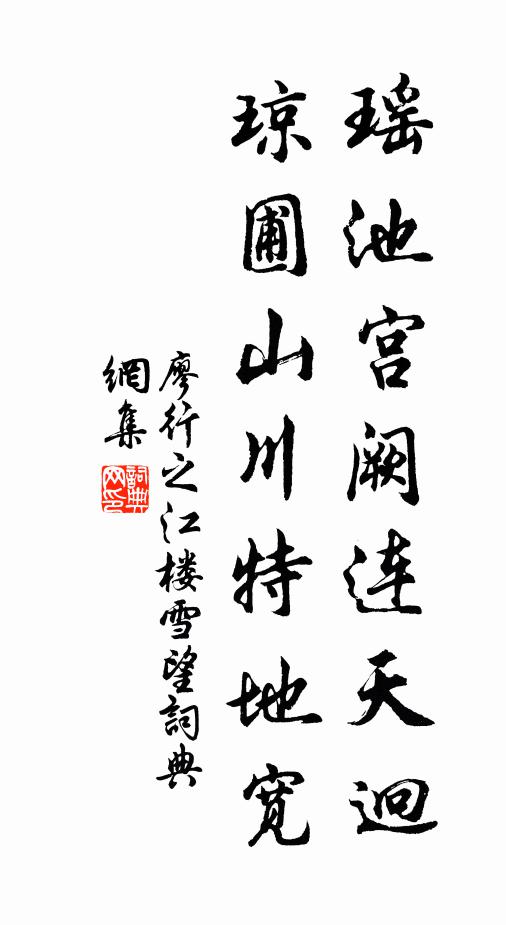 瑶池宫阙连天迥
琼圃山川特地宽
廖行之江楼雪望詞典
網集
詞典
网印